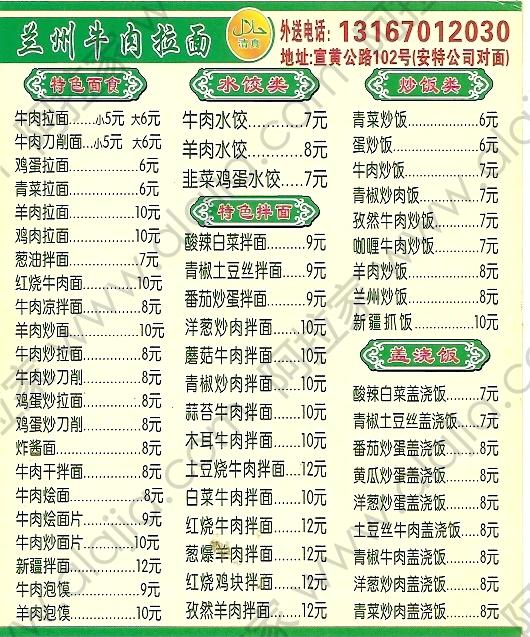 兰州牛肉拉面
清真
外送电话：13167012030
地址:宣黄公路102号(安特公司对面)
特色面食
牛肉拉面......小5元 大6元
牛肉刀削面...小5元 大6元
鸡蛋拉面............6元
青菜拉面............6元
羊肉拉面............10元
鸡肉拉面............10元
葱油拌面............7元
红烧牛肉面.........10元
牛肉凉拌面.........8元
羊肉炒面............10元
牛肉炒拉面.........8元
牛肉炒刀削.........8元
鸡蛋炒拉面.........8元
鸡蛋炒刀削.........8元
炸酱面...............8元
牛肉干拌面.........8元
牛肉烩面............8元
牛肉烩面片.........9元
牛肉炒面片.........10元
新疆拌面............12元
牛肉泡馍............9元
羊肉泡馍............10元
水饺类
牛肉水饺............7元
羊肉水饺............8元
韭菜鸡蛋水饺......7元
特色拌面
酸辣白菜拌面......9元
青椒土豆丝拌面...9元
番茄炒蛋拌面......9元
洋葱炒肉拌面......10元
蘑菇牛肉拌面......10元
青椒炒肉拌面......10元
蒜苔牛肉拌面......10元
木耳牛肉拌面......10元
土豆烧牛肉拌面...12元
白菜牛肉拌面......10元
红烧牛肉拌面......12元
葱爆羊肉拌面......12元
红烧鸡块拌面......12元
孜然羊肉拌面......12元
炒饭类
青菜炒饭............6元
蛋炒饭...............6元
牛肉炒饭............7元
青椒炒肉饭.........7元
孜然牛肉炒饭......7元
咖喱牛肉炒饭......7元
羊肉炒饭............8元
兰州炒饭............8元
新疆抓饭............10元
盖浇饭
酸辣白菜盖浇饭......7元
青椒土豆丝盖浇饭...7元
番茄炒蛋盖浇饭......8元
黄瓜炒蛋盖浇饭......8元
洋葱炒蛋盖浇饭......8元
土豆丝牛肉盖浇饭...8元
青椒牛肉盖浇饭......8元
洋葱炒肉盖浇饭......8元
青菜炒肉盖浇饭......8元